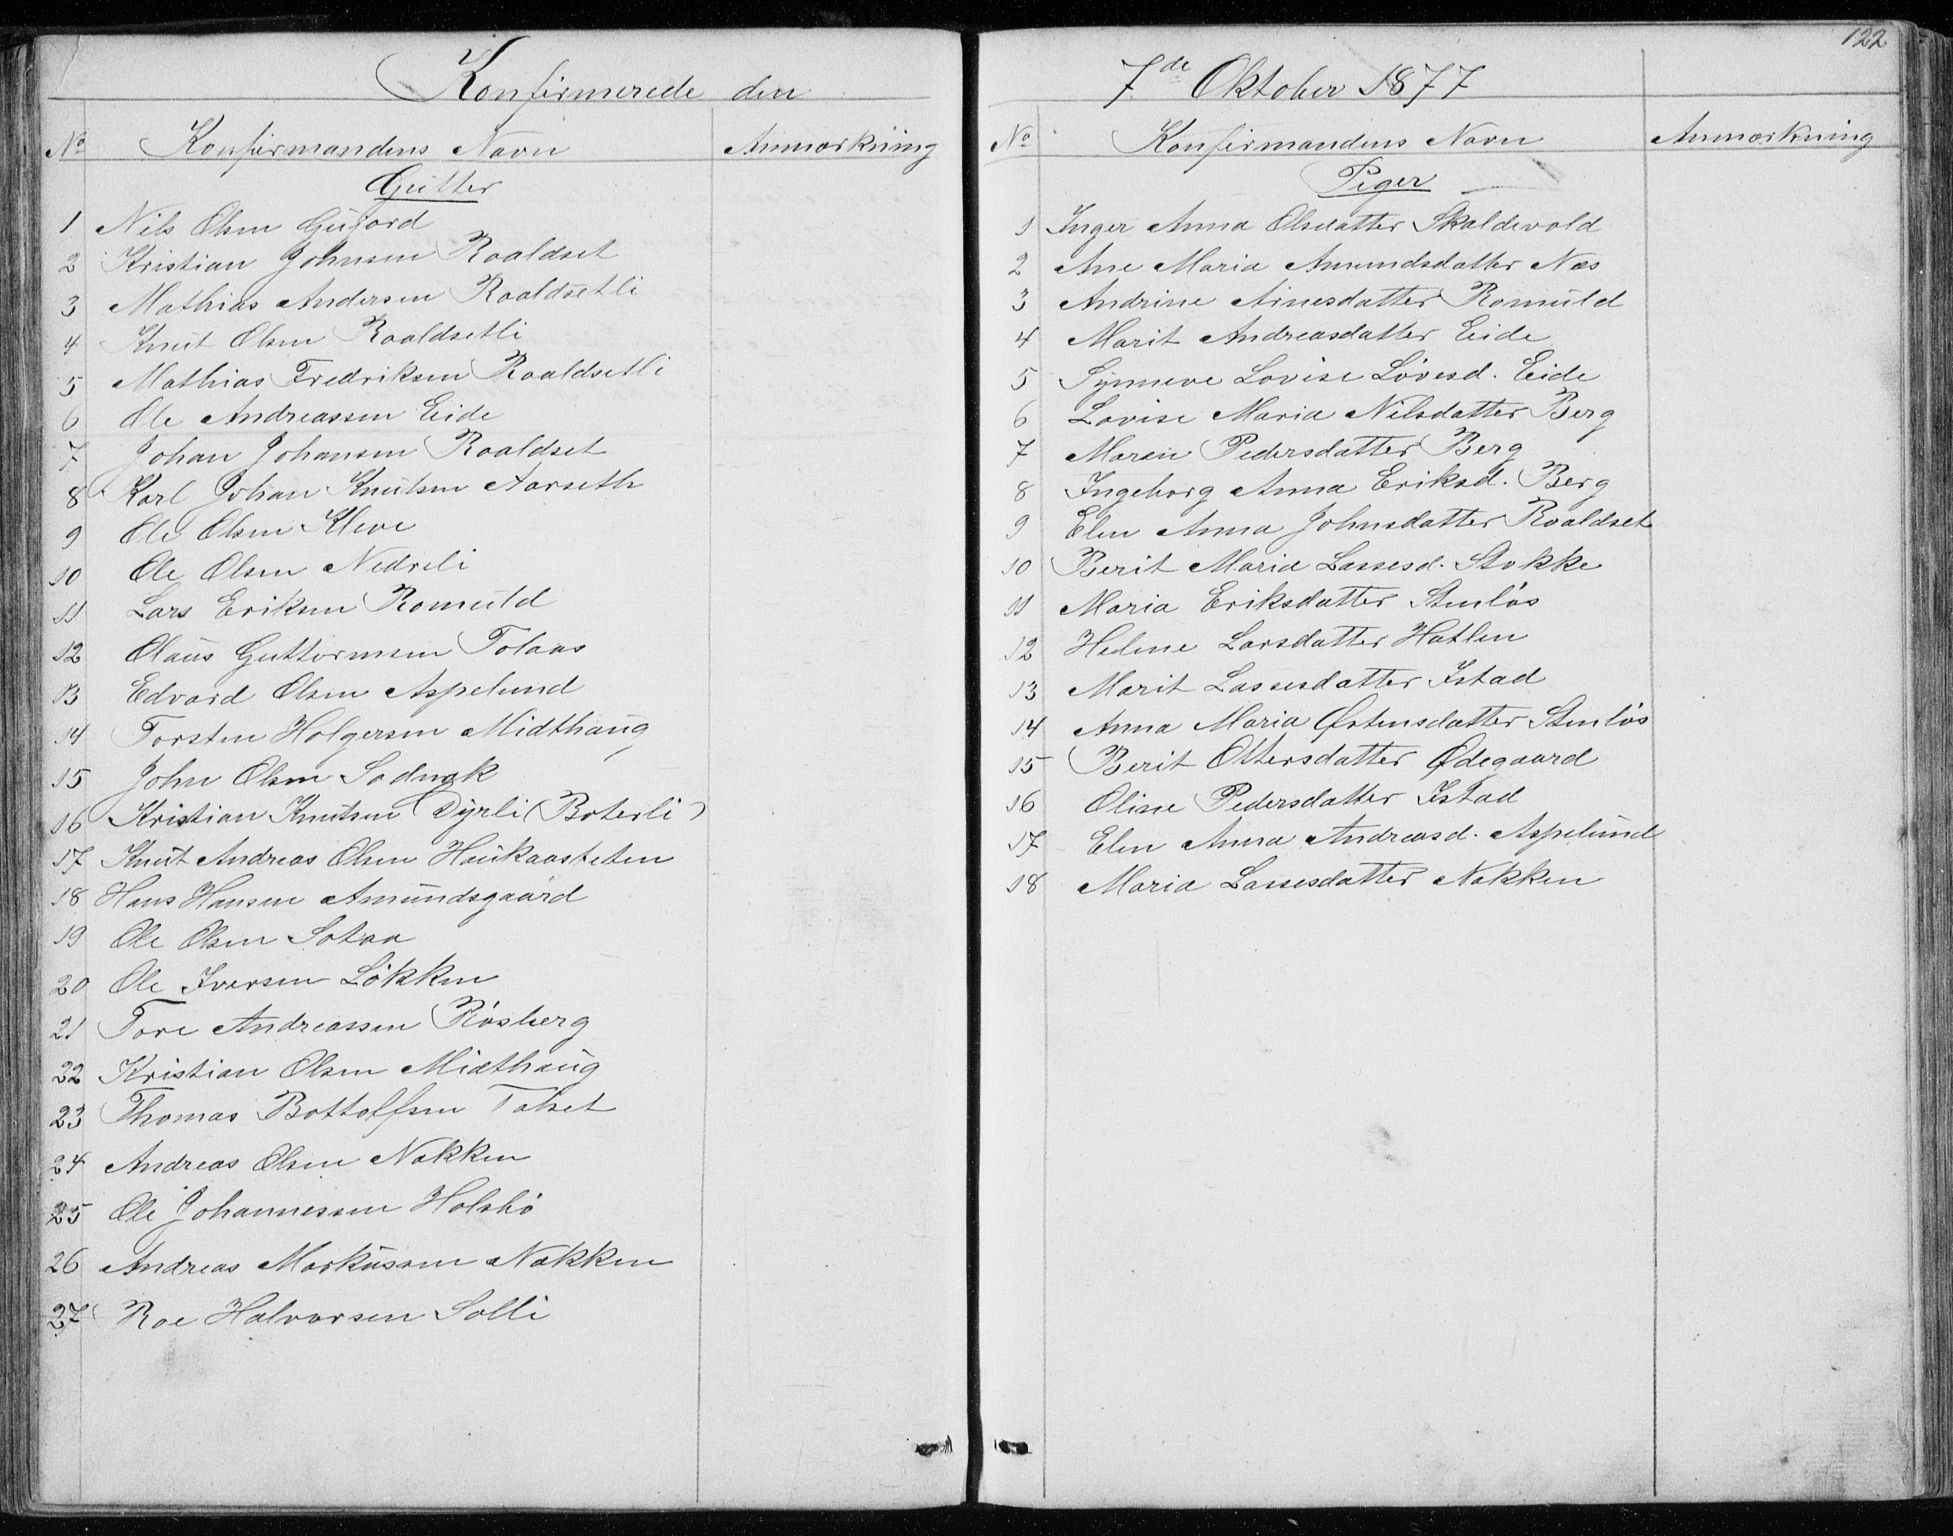 122
Konfirmerede den 7de Oktober 1877
No Konfirmandens Navn Anmærkning
Gutter
1 Nils Olsen Gujord
2 Kristian Johnsen Roaldset
3 Mathias Andersen Roaldsetli
4 Knut Olsen Roaldsetli
5 Mathias Fredriksen Roaldsetli
6 Ole Andreassen Eide
7 Johan Johansen Roaldset
8 Karl Johan Knutsen Aarseth
9 Ole Olsen Kleve
10 Ole Olsen Nedreli
11 Lars Eriksen Romuld
12 Olaus Guttormsen Tolaas
13 Edvard Olsen Aspelund
14 Torsten Holgersen Midthaug
15 John Olsen
16 Kristian Knutsen Dyrli (Boterli)
17 Knut Andreas Olsen Haukaasteten
18 Hans Hansen Amundsgaard
19 Ole Olsen Sotaa
20 Ole Iversen Løkken
21 Tore Andreassen Røsberg
22 Kristian Olsen Midthaug
23 Thomas Bottolfsen Talset
24 Andreas Olsen Nakken
25 Ole Johannessen Holsbø
26 Andreas Markussen Nakken
27 Roe Halvorsen Solli
No Konfirmandens Navn Anmærkning
Piger
1 Inger Anna Olsdatter Skaldevold
2 Ane Maria Amundsdatter Næs
3 Andrine Arnesdatter Romuld
4 Marit Andreasdatter Eide
5 Synneve Lovise Løvesd. Eide
6 Lovise Maria Nilsdatter Berg
7 Maren Pedersdatter Berg
8 Ingeborg Anna Eriksd. Berg
9 Elen Anna Johnsdatter Roaldset
10 Berit Maria Lassesd. Stokke
11 Maria Eriksdatter Stenløs
12 Helene Larsdatter Hatlen
13 Marit Lassesdatter Istad
14 Anna Maria Østensdatter Stenløs
15 Berit Ottersdatter Ødegaard
16 Oline Pedersdatter Istad
17 Elen Anna Andreasd. Aspelund
18 Maria Lassesdatter Nakken